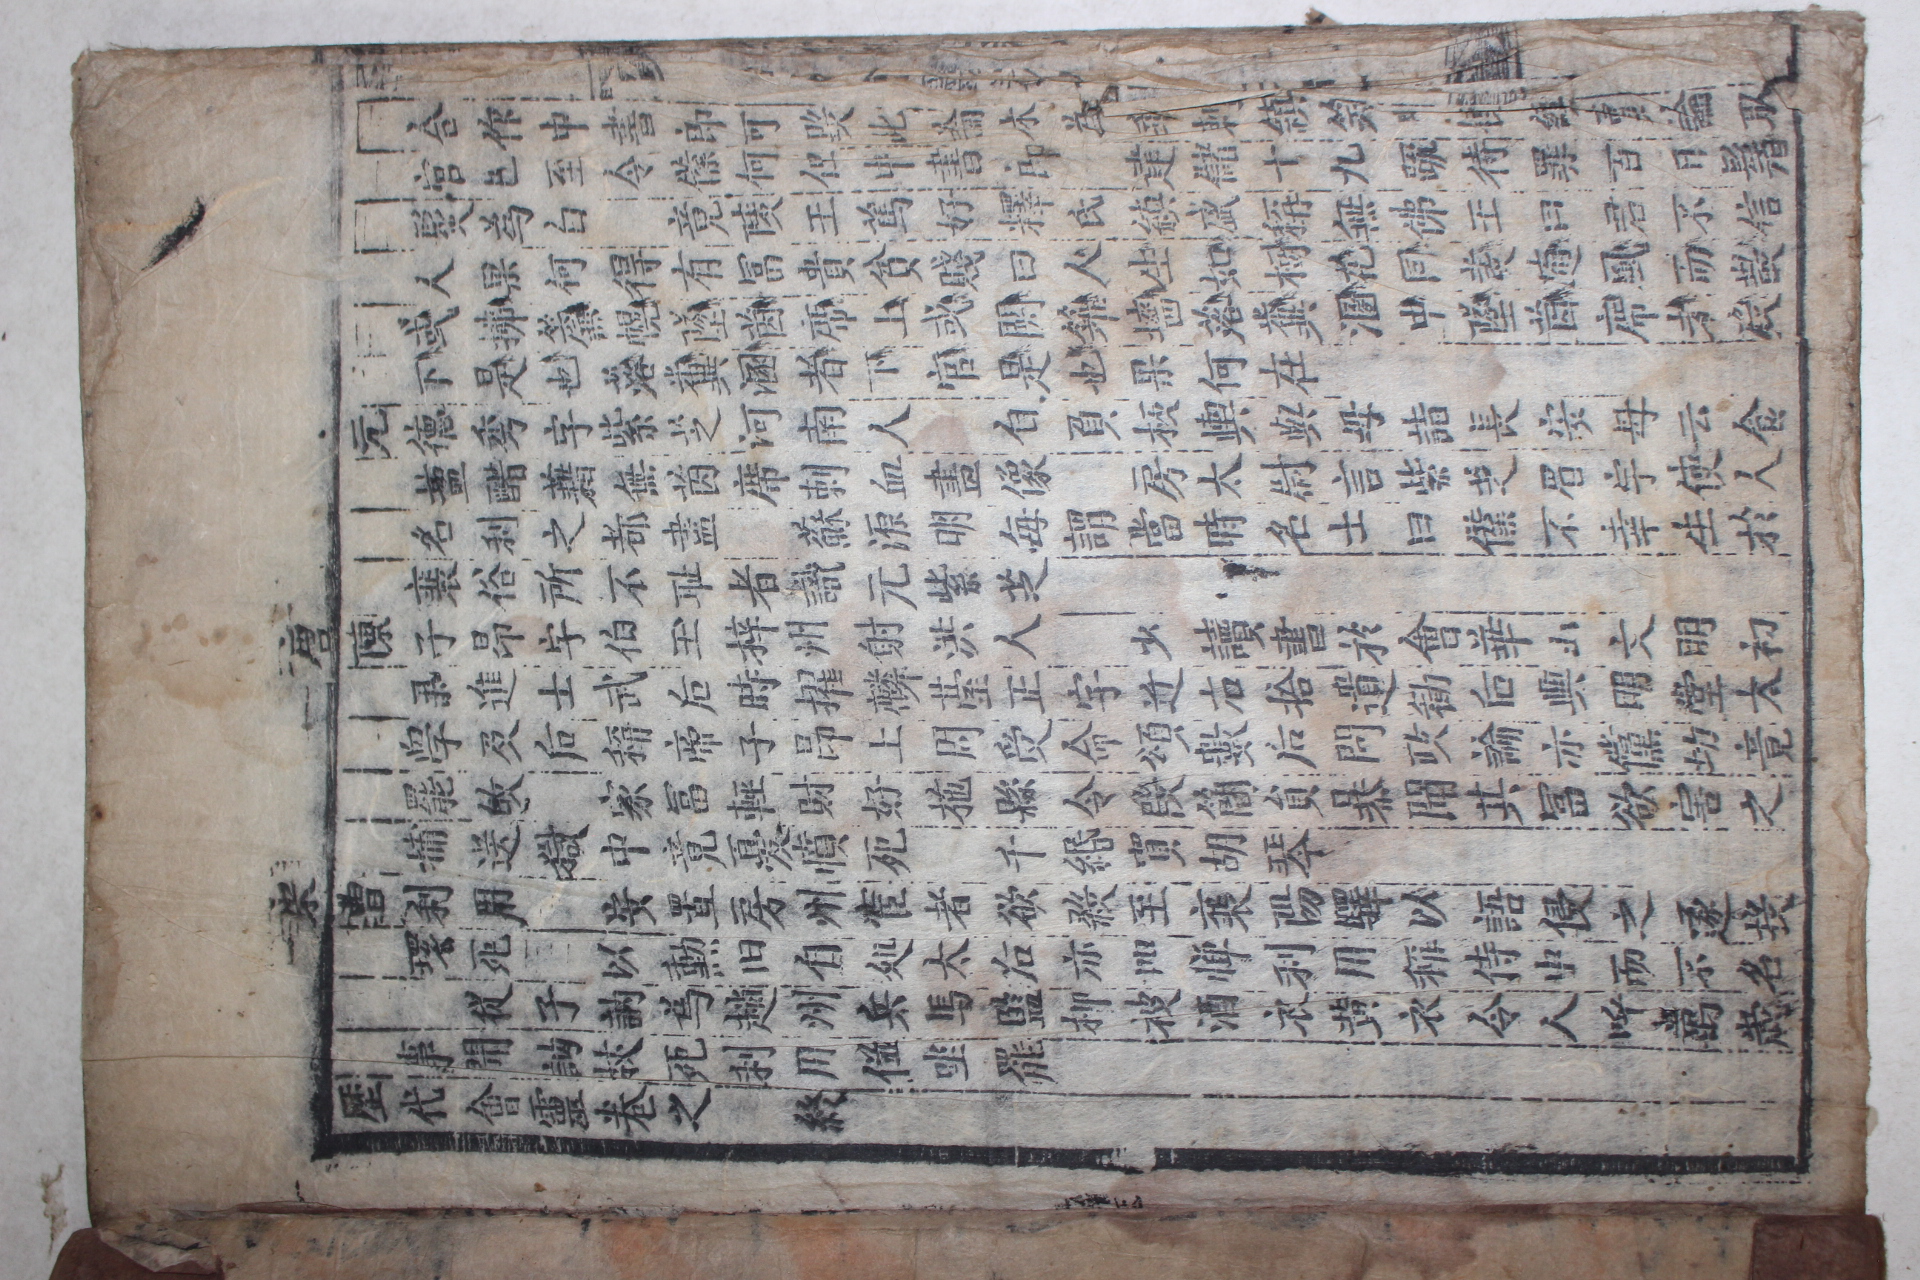 令作中書郎可笑此論木為
官已至令僕何但中書郎 建儲十九疏待罪百日鬚
髮為白 竟陵王篤好釋氏縝盛稱無佛王曰君不信
人果何得有冨貴貧賤曰人生如樹花同發隨風而散
或拂簾幌墜茵席上或関籬墻落糞溷中墜茵席者殿
下是也落糞溷者下官是也果何在
元德秀字紫芝河南人 自負板輿與母詣長安母云食
藍醋藉無茵席刺血畫像 房太尉言紫芝眉宇使人
名利之都盡 蘇源明每謂當時名士曰僕不幸生於
襄俗所不耻者識元紫芝
唐
陳子昂字伯玉梓州射洪人 少讀書於會華山文明初
舉進士武后時擢麟臺正字近右拾遺勧后興明堂太
學及后稱帝子昂上周受命頌數后問政論亦儻切竟
罷敀 家冨輕財好施縣令段簡貪暴聞其冨欲害之
捕送獄中竟憂憤死 千緡買胡琴
宋
曹利用 安置房州宦者欲殺至襄陽驛以語侵之逐投
環死 以勳旧自処太后亦㐫憚利用稱侍中而不名
從子訥為趙州兵馬監押被酒衣黄衣令人呼萬歲
事聞訥杖死利用傡坐罷
歷代會靈卷之 終